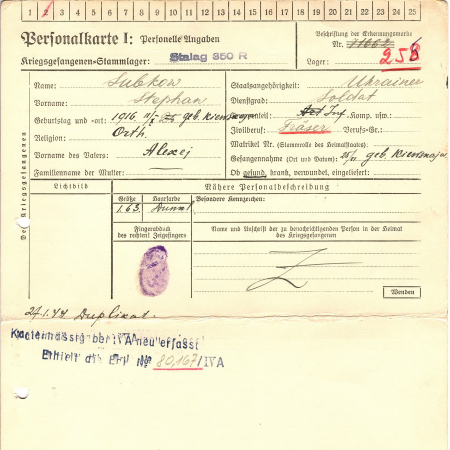 1 2 3 4 5 6 7 8 9 10 11 12 13 14 15 16 17 18 19 20 21 22 23 24 25
Personalkarte I: Personelle Angaben
Kriegsgefangenen-Stammlager: Stalag 350 R
Beschriftung der Erkennungsmarke
Nr.
Lager: 258
Des Kriegsgefangenen
Name: Subkow
Vorname: Stephan
Geburtstag und -ort: 1916
Religion: Orth.
Vorname des Vaters: Alexej
Familienname der Mutter:
Staatsangehörigkeit: Ukrainer
Dienstgrad: Soldat
Truppenteil: Inf Komp. usw.:
Zivilberuf: Fräser Berufs-Gr.:
Matrikel Nr. (Stammrolle des Heimatstaates):
Gefangennahme (Ort und Datum):
Ob gesund, krank, verwundet, eingeliefert:
Lichtbild
Nähere Personalbeschreibung
Größe Haarfarbe Besondere Kennzeichen:
1.63
Fingerabdruck
des rechten! Zeigefingers
Name und Anschrift der zu benachrichtigenden Person in der Heimat
des Kriegsgefangenen
Wenden
24.1.44 Duplikat.
Karteimässig bei IVA neu erfasst
Erhielt die Nº 80,167/IVA